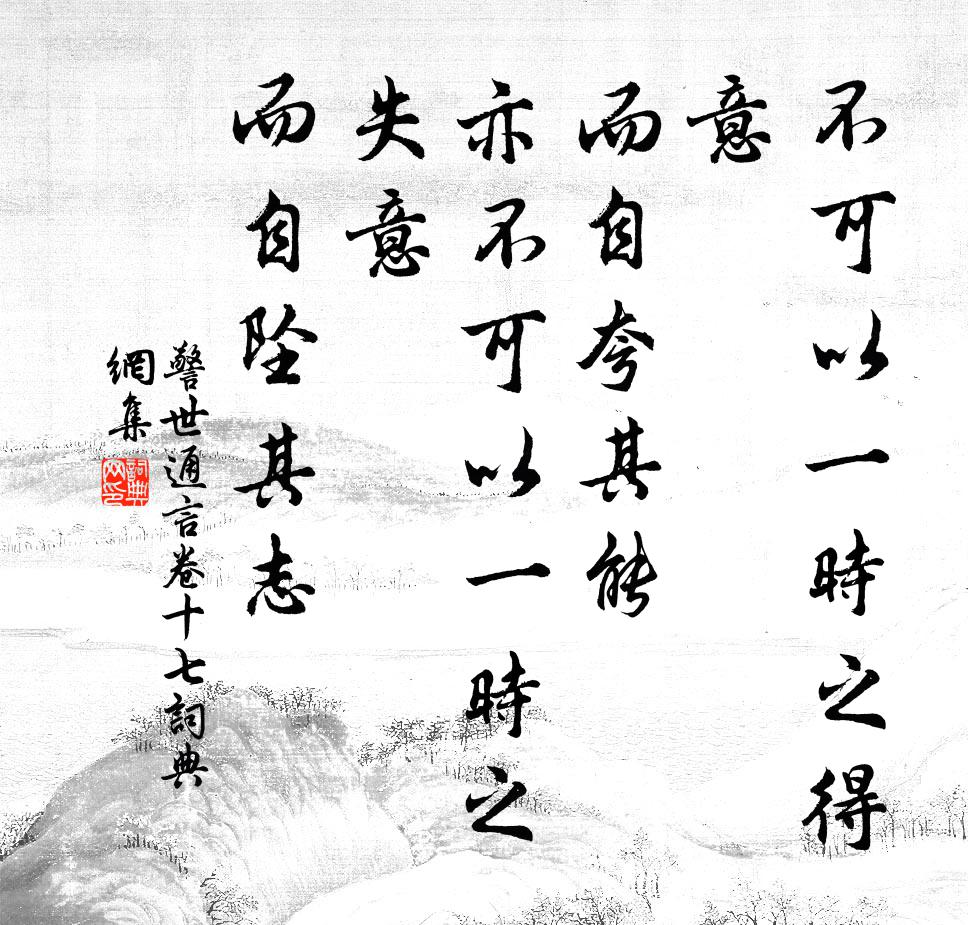 不可以一時之得
意
而自夸其能
亦不可以一時之
失意
而自坠其志
警世通言卷十七詞典
網集
詞典
网印